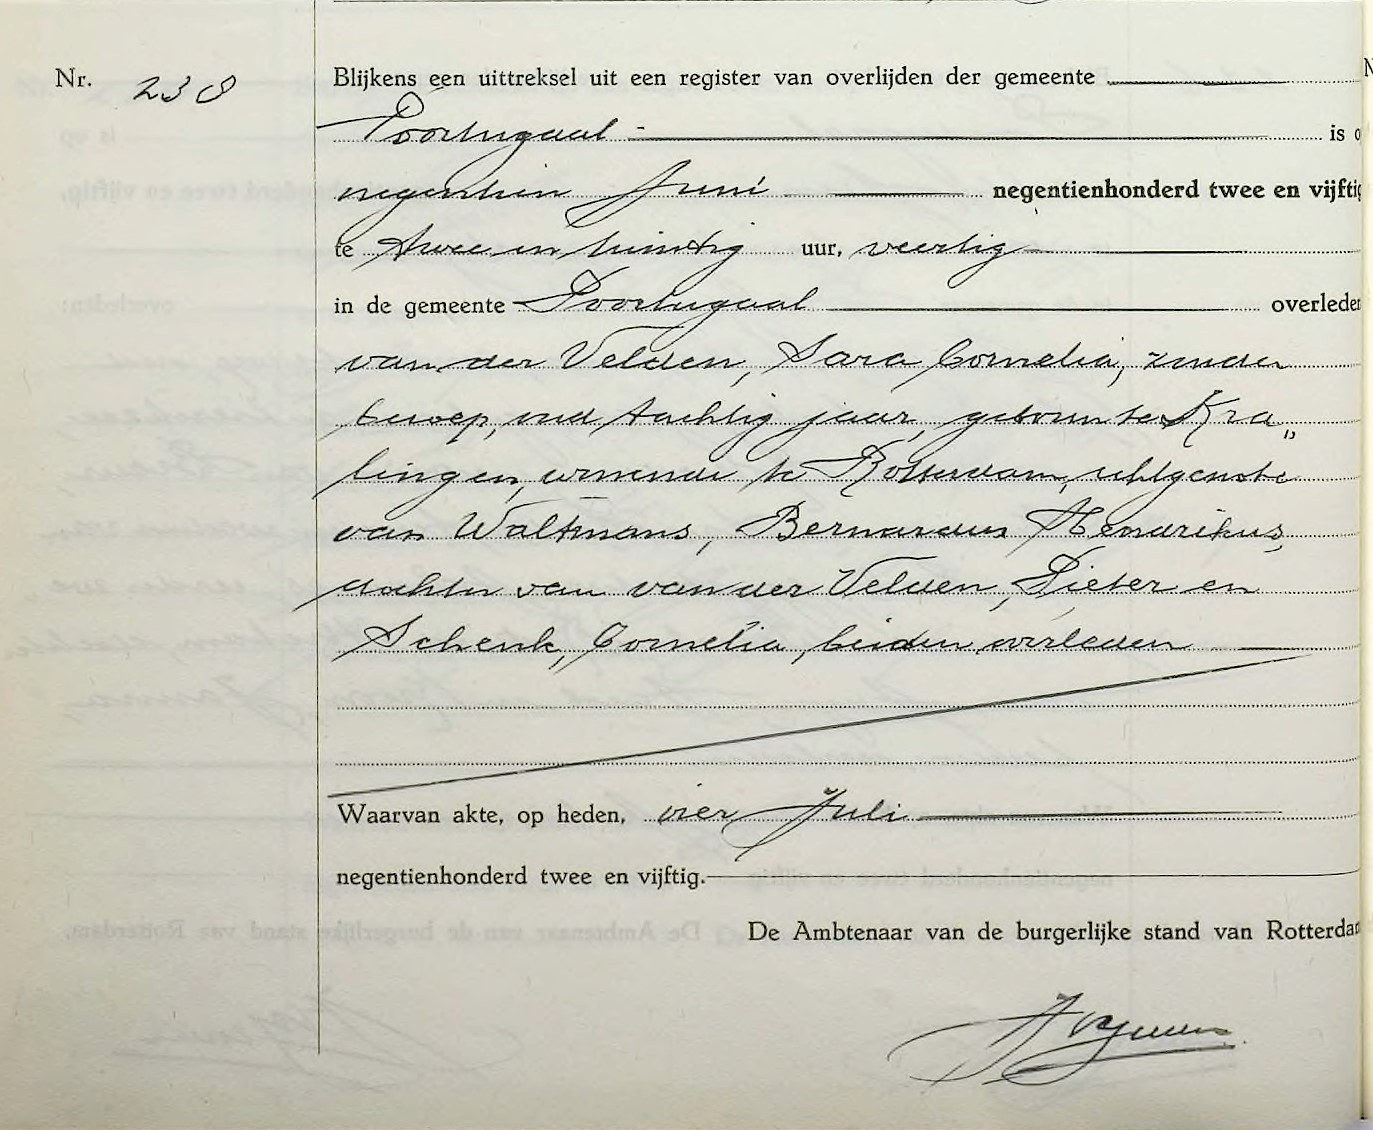 Nr. 238
Blijkens een uittreksel uit een register van overlijden der gemeente
Poortugaal is o
negentien Juni negentienhonderd twee en vijftig
te twee en twintig uur, veertig
in de gemeente Poortugaal overleden
van der Velden, Sara Cornelia, zonder
beroep, oud tachtig jaar, geboren te Kra„
lingen, wonende te Rotterdam, echtgenote
van Waltmans, Bernardus Hendrikus,
dochter van van der Velden, Pieter en
Schenk, Cornelia, beiden overleden
Waarvan akte, op heden, vier Juli
negentienhonderd twee en vijftig.
De Ambtenaar van de burgerlijke stand van Rotterdam